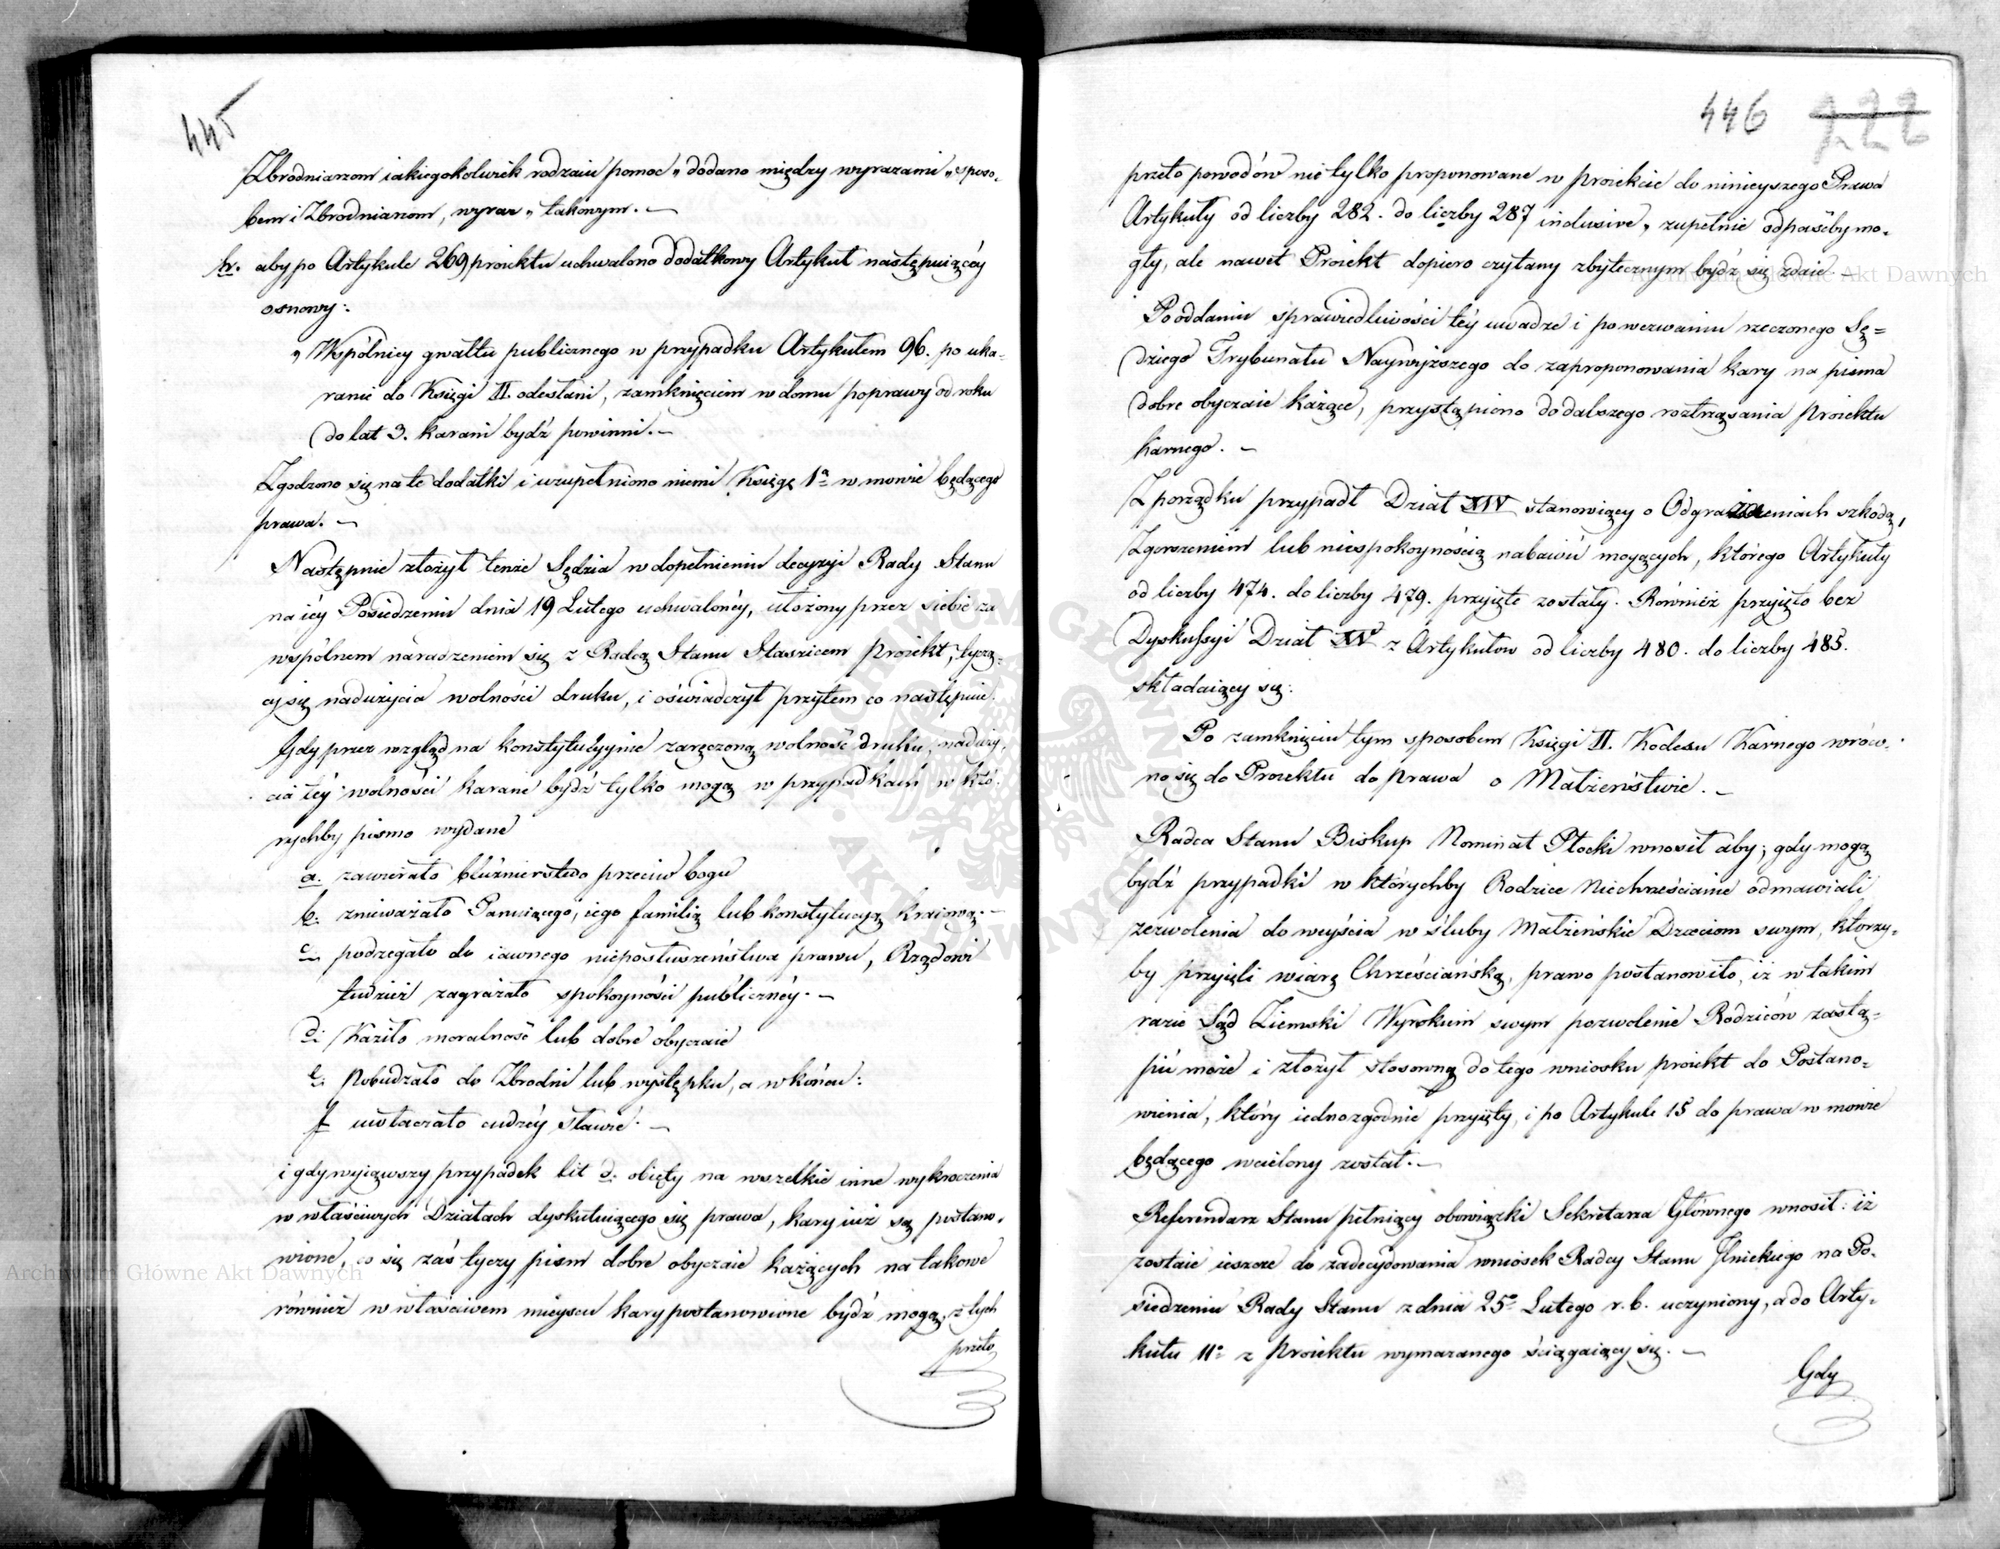 445
Zbrodniarzom iakiegokolwiek rodzaiu pomoc„ dodano między wyrazami „sposo-
bem i Zbrodniarzom, wyraz „takowym. —
h. aby po Artykule 269 proiektu uchwalono dodatkowy Artykuł następuiącey
osnowy:
„Wspólnicy gwałtu publicznego w przypadku Artykułem 96. po uka-
ranie do Księgi II. odesłani, zamknięciem w domu poprawy od roku
do lat 3. karani bydź powinni. —
Zgodzono się na te dodatki i uzupełniono niemi Księgę 1ą w mowie będącego
prawa. —
Następnie złożył tenże Sędzia w dopełnieniu decyzyi Rady Stanu
na iéy Posiedzeniu dnia 19 Lutego uchwalonéy, ułożony przez siebie za
wspólnem naradzeniem się z Radcą Stanu Staszicem proiekt, tyczą-
cy się nadużycia wolności druku, i oświadczył przytem co następuie:
Gdy przez wzgląd na konstytucyynie zaręczoną wolność druku, naduży-
cia téy wolności karane bydź tylko mogą w przypadkach w któ-
rychby pismo wydane
a. zawierało bluźnierstwo przeciw bogu
b. znieważało Panuiącego, iego familią lub konstytucyą kraiową. —
c. podżegało do iawnego nieposłuszeństwa prawu, Rządowi
tudzież zagrażało spokoyności publicznéy. —
d. Kaziło moralność lub dobre obyczaie
e. Pobudzało do Zbrodni lub występku, a w końcu:
f uwłaczało cudzéy sławie. —
i gdy wyiąwszy przypadek lit d. obięty na wszelkie inne wykroczenia
w właściwych Działach dyskutuiącego się prawa, kary iuż są postano-
wione, co się zaś tyczy pism dobre obyczaie każących na takowe
również w właściwem mieyscu kary postanowione bydź mogą, z tych
przeto
446 222
przeto powodów nie tylko proponowane w proiekcie do ninieyszego Prawa
Artykuły od liczby 282. do liczby 287 inclusive, zupełnie odpaśćby mo-
gły, ale nawet Proiekt dopiero czytany zbytecznym bydź się zdaie. —
Po oddaniu sprawiedliwości téy uwadze i po wezwaniu rzeczonego Sę-
dziego Trybunału Naywyższego do zaproponowania kary na pisma
dobre obyczaie każące, przystąpiono do dalszego roztrząsania Proiektu
karnego. —
Z porządku przypadł Dział XIV stanowiący o Odgrażeniach szkodą,
Zgorszeniem lub niespokoynością nabawić mogących, którego Artykuły
od liczby 474. do liczby 479. przyięte zostały. Również przyięto bez
Dyskussyi Dział XV z Artykułow od liczby 480. do liczby 485.
składaiący się.
Po zamknięciu tym sposobem Księgi II. Kodexu Karnego wróco-
no się do Proiektu do prawa o Małżeństwie. —
Radca Stanu Biskup Nominat Płocki wnosił aby; gdy mogą
bydź przypadki w którychby Rodzice Niechrześcianie odmawiali
zezwolenia do weyścia w śluby Małżeńskie Dzieciom swym, którzy-
by przyięli wiarę Chrześciańską, prawo postanowiło, iż w takim
razie Sąd Ziemski Wyrokiem swym pozwolenie Rodziców zastą-
pić może i złożył stosowny do tego wniosku proiekt do Postano-
wienia, który iednozgodnie przyięty, i po Artykule 15 do prawa w mowie
będącego wcielony został. —
Referendarz Stanu pełniący obowiązki Sekretarza Głównego wnosił: iż
zostaie ieszcze do zadecydowania wniosek Radcy Stanu Glnickiego na Po-
siedzeniu Rady Stanu z dnia 25º Lutego r. b. uczyniony, a do Arty-
kułu 11º z Proiektu wymazanego ściągaiący się. —
Gdy
Archiwum Główne Akt Dawnych
Archiwum Główne Akt Dawnych
ARCHIWUM GŁÓWNE AKT DAWNYCH